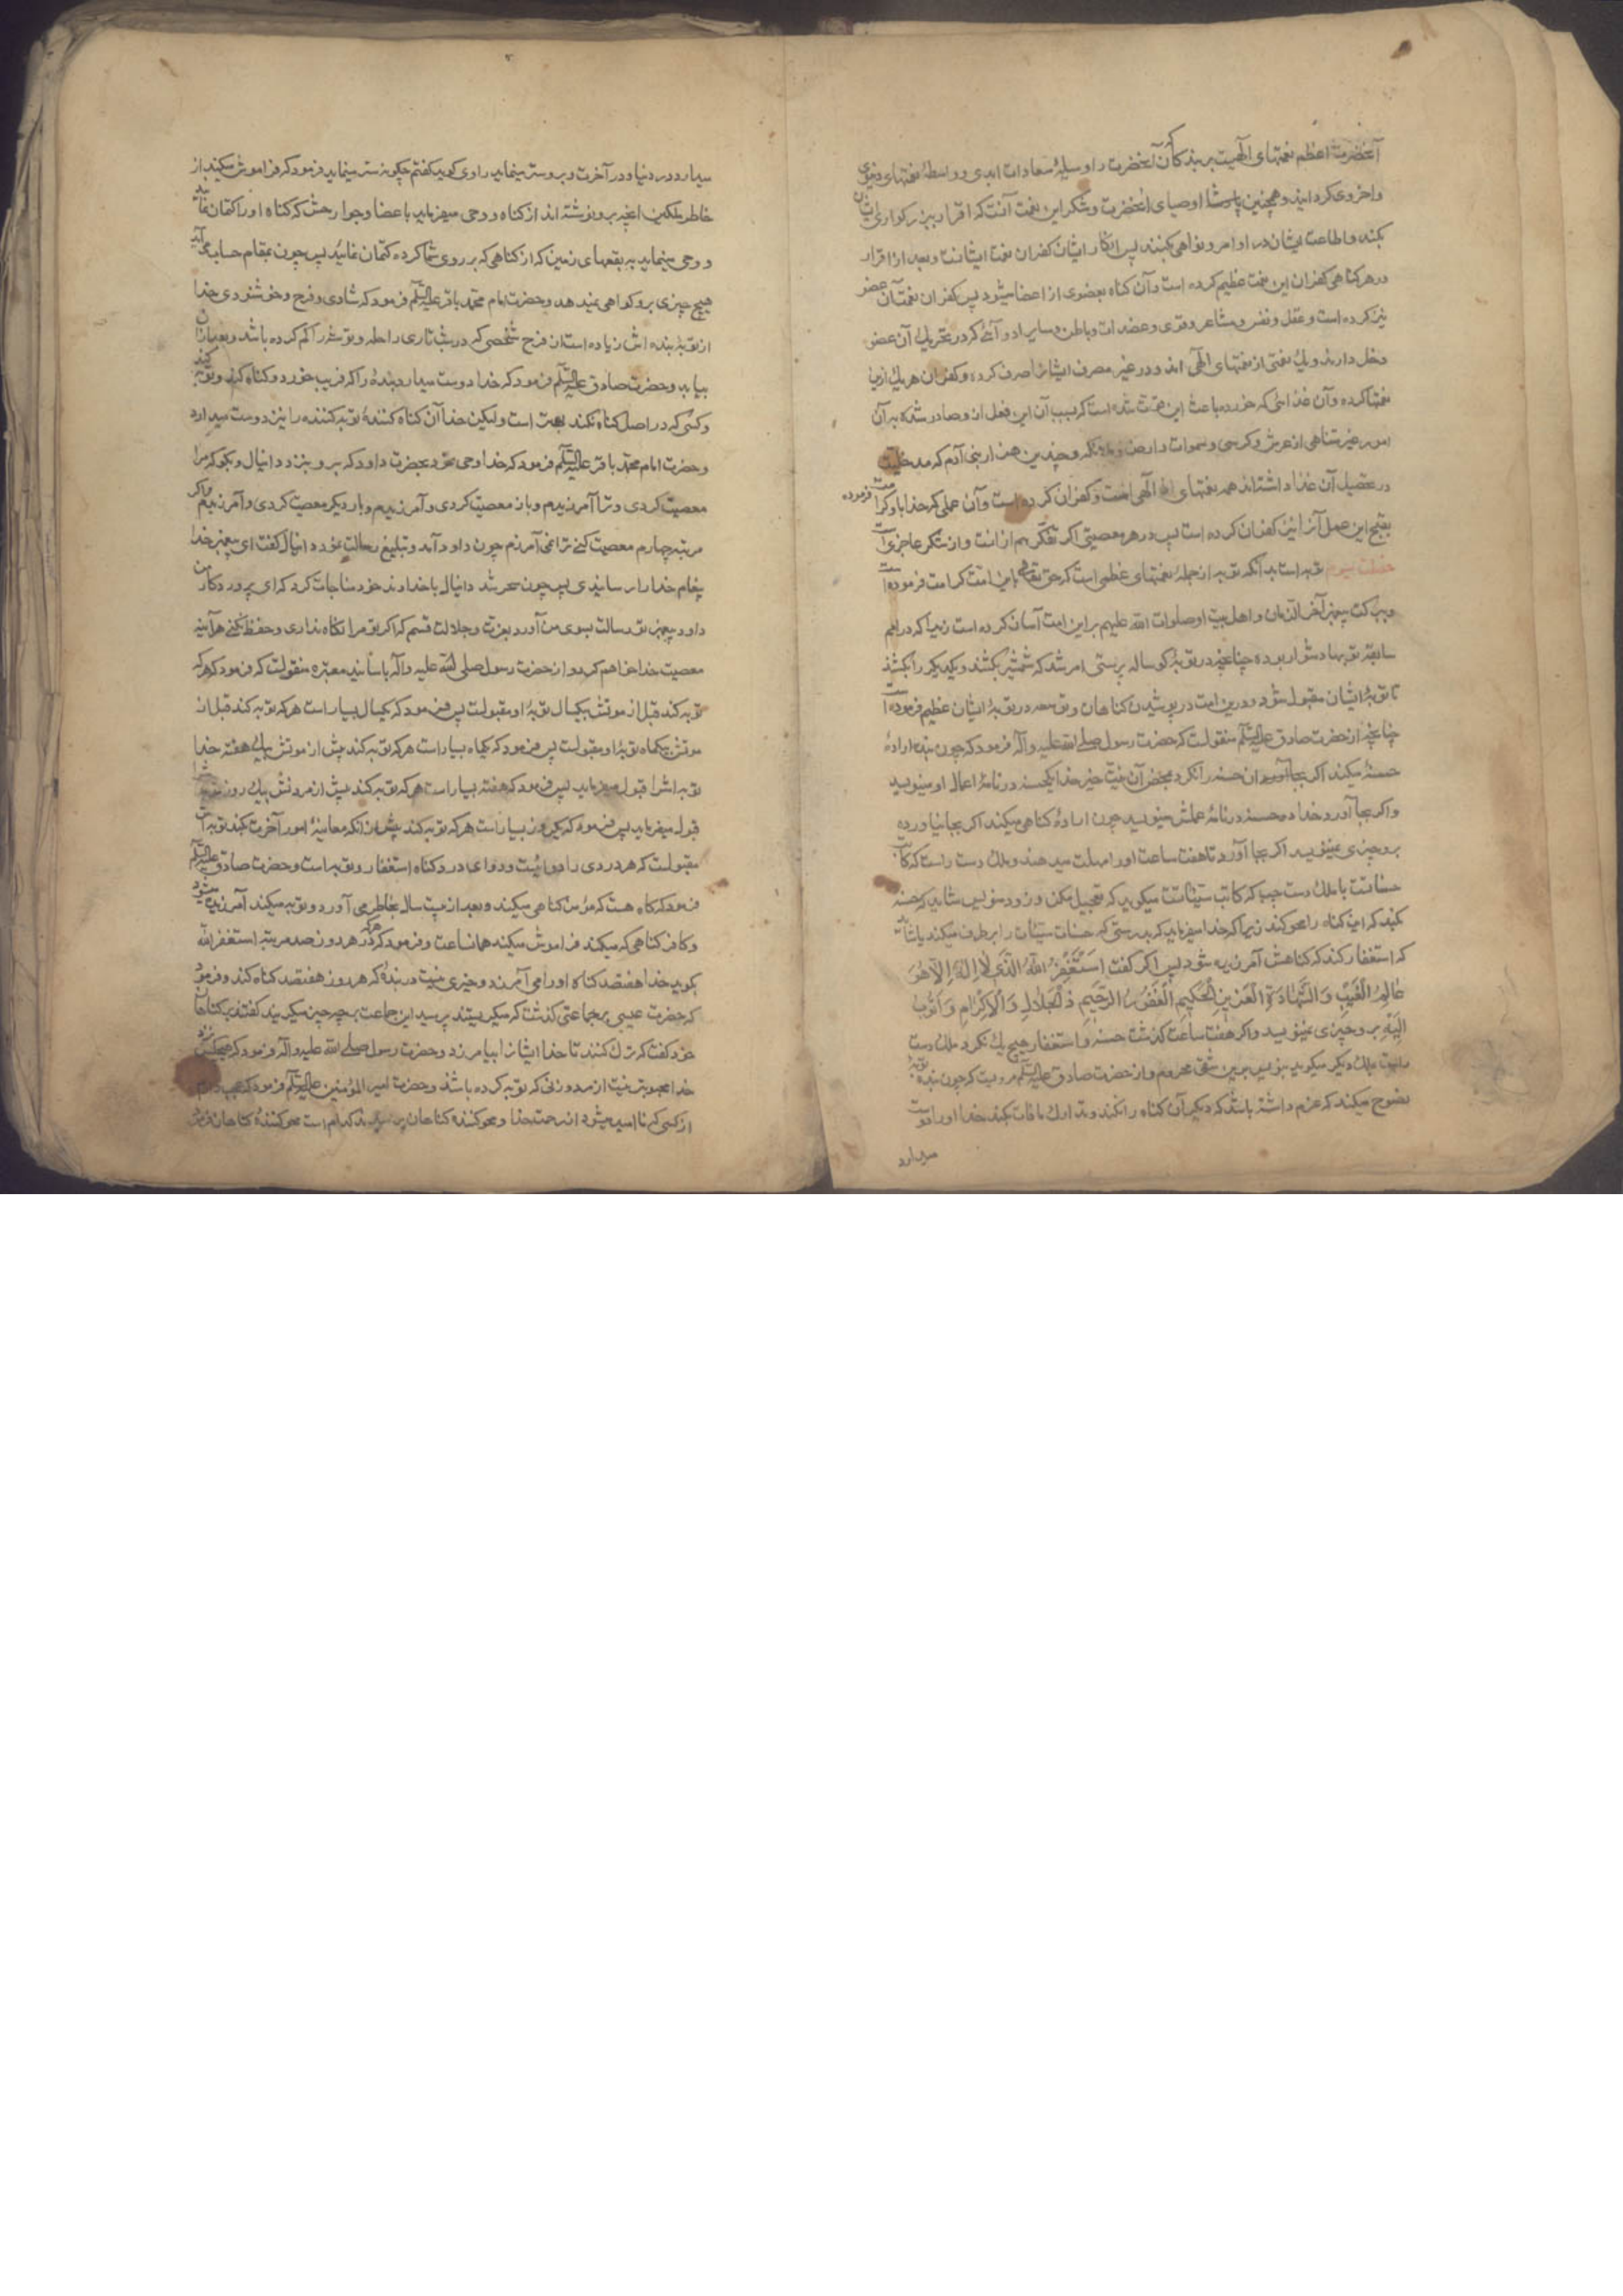 آنحضرت اعظم نعمتهای الٓهیست بر بندکان که آنحضرت را وسیلهٔ سعادات ابدی و واسطهٔ نعمتهای دنیوی
واخروی کردانیده و همچنین اوصیای آنحضرت و شکر این نعمت آنست که اقرار ببزرکواری ایشان
بکنند و اطاعت ایشان در اوامر و نواهی بکنند پس انکار ایشان کفران نعمت ایشانست و بعد از اقرار
در هر کناهی کفران این نعمت عظیم کرده است و آن کناه بعضوی از اعضا میشود پس کفران نعمت آن عضو
نیز کرده است و عقل و نفس و مشاعر و قوی و عضلات و باطن و سایر ادواتی که در تحریك آن عضو
دخل دارند و یك نعمتی از نعمتهای الٓهی اند و در غیر مصرف ایشانرا صرف کرده و کفران هر یك از این
نعمتها کرده و آن غذائی که خورده باعث این قوت شده است که بسبب آن این فعل از او صادر شده بر آن
امور غیر متناهی از عرش و کرسی و سموات و ارضین و ملائکه و چندین هزار بنی آدم که مدخلیت
در تحصیل آن غذا داشته‌اند همه نعمتهای الٓهی است و کفران کرده است و آن عملی که خدا او را کرامت فرموده
بقبح این عمل آنرا نیز کفران کرده است پس در هر معصیتی اکر تفکر هم از انست و از شکر عاجزی است
خصلت سیوم توبه است بدانکه توبه از جملهٔ نعمتهای عظمی است که حق تعالی باین امت کرامت فرموده است
و ببرکت پیغمبر آخر الزمان و اهل بیت او صلوات الله علیهم بر این امت آسان کرده است زیرا که در امم
سابقه توبها دشوار بوده چنانچه در توبهٔ کوساله پرستی امر شد که شمشیر بکشند و یکدیکر را بکشند
تا توبهٔ ایشان مقبول شود و درین امت در پوشیدن کناهان و توسعه در توبهٔ ایشان عظیم فرموده است
چنانچه از حضرت صادق علیه السلام منقولست که حضرت رسول صلی الله علیه و آله فرمود که چون بنده ارادهٔ
حسنهٔ میکند اکر آن حسنه را نکرد بمحض آن نیت خیر خدا یکحسنه در نامهٔ اعمال او مینویسد
و اکر بجا آورد خدا ده حسنه در نامهٔ عملش مینویسد و چون ارادهٔ کناهی میکند اکر بجا نیاورده
برو چیزی نمینویسد و اکر بجا آورد تا هفت ساعت او را مهلت میدهند و ملك دست راست که کاتب
حسنات است با ملك دست چپ که کاتب سیئاتست میکوید که تعجیل مکن و زود منویس شاید که حسنه
بکند که این کناه را محو کند زیرا که خدا میفرماید که بدرستی که حسنات سیئات را برطرف میکند یا شاید
که استغفار کند که کناهش آمرزیده شود پس اکر کفت اَسْتَغْفِرُ اللهَ الَّذی لٰا اِلٰهَ اِلّا هُوَ
عٰالِمُ الْغَیْبِ وَ الشَّهٰادَةِ الْعَزیزِ الْحَکیمِ الْغَفُورُ الرَّحیمِ ذُ الْجَلٰالِ وَ الْاِکْرٰامِ وَ اَتُوبُ
اِلَیْهِ برو چیزی نمینویسد و اکر هفت ساعت کذشت حسنه و استغفار هیچ یك نکرد ملك دست
راست بملك دیکر میکوید بنویس برین شقی محروم و از حضرت صادق علیه السلام مرویست که چون بنده توبهٔ
نصوح میکند که عزم داشته باشد که دیکر آن کناه را نکند و تدارك ما فات بکند خدا او را دوست
میدارد
میدارد در دنیا و در آخرت و برو ستر مینماید راوی کوید کفتم چکونه ستر مینماید فرمود که فراموش میکند از
خاطر ملکین آنچه برو نوشته‌اند از کناه و وحی میفرماید باعضا و جوارحش که کناه او را کتمان نمایید
و وحی مینماید به بقعهای زمین که از کناهی که بر روی شما کرده کتمان نمائید پس چون بمقام حساب می آید
هیچ چیزی برو کواهی نمیدهد و حضرت امام محمد باقر علیه السلام فرمود که شادی و فرح و خوشنودی خدا
از توبهٔ بنده‌اش زیاده است از فرح شخصی که در شب تاری راحله و توشه‌را کم کرده باشد و بعد آنرا
بیابد و حضرت صادق علیه السلام فرمود که خدا دوست میدارد بندهٔ را که فریب خورد و کناه کند و توبه کند
و کسی که در اصل کناه نکند بهتر است ولیکن خدا آن کناه کنندهٔ توبه کننده را نیز دوست میدارد
و حضرت امام محمد باقر علیه السلام فرمود که خدا وحی نمود بحضرت داود که برو بنزد دانیال و بکو که مرا
معصیت کردی و ترا آمرزیدم و باز معصیت کردی و آمرزیدم و بار دیکر معصیت کردی و آمرزیدم و اکر
مرتبه چهارم معصیت کنی ترا نمی آمرزم چون داود آمد و تبلیغ رسالت نمود دانیال کفت ای پیغمبر خدا
پیغام خدا را رسانیدی پس چون سحر شد دانیال با خداوند خود مناجات کرد که ای پروردکار من
داود پیغمبر تو رسالت بسوی من آورد بعزت و جلالت قسم که اکر تو مرا نکاه نداری و حفظ نکنی هرآینه
معصیت خواهم کرد و از حضرت رسول صلی الله علیه و آله باسانید معتبره منقولست که فرمود که هر که
توبه کند قبل از موتش بیکسال توبهٔ او مقبولست پس فرمود که یکسال بسیار است هر که توبه کند قبل از
موتش بیکماه توبهٔ او مقبولست پس فرمود که یکماه بسیار است هر که توبه کند پیش از موتش بیك هفته خدا
توبه اشرا قبول میفرماید پس فرمود که هفته بسیار است هر که توبه کند پیش از مردنش بیك روز
قبول میفرماید پس فرمود که یکروز بسیار است هر که توبه کند پیش از آنکه معاینهٔ امور آخرت بکند توبه اش
مقبولست که هر دردی را دوائیست و دوای درد کناه استغفار و توبه است و حضرت صادق علیه السلام
فرمود که کاه هست که مؤمن کناهی میکند و بعد از بیست سال بخاطر می آورد و توبه میکند آمرزیده میشود
و کافر کناهی که میکند فراموش میکند همانساعت و فرمود که هر که در هر روز صد مرتبه استغفر الله
بکوید خدا هفتصد کناه او را می آمرزد و خیری نیست در بندهٔ که هر روز هفتصد کناه کند و فرمود
که حضرت عیسی بجماعتی کذشت که میکریستند پرسید این جماعت بچه چیز میکریند کفتند بر کناهان
خود کفت که ترك کنند تا خدا ایشانرا بیامرزد و حضرت رسول صلی الله علیه و آله فرمود که هیچکس نزد
خدا محبوبتر نیست از مرد و زنی که توبه کرده باشد و حضرت امیر المؤمنین علیه السلام فرمود که عجب دارم
از کسی که ناامید میشود از رحمت خدا و محو کننده کناهان کدام است محو کنندهٔ کناهان فرمود